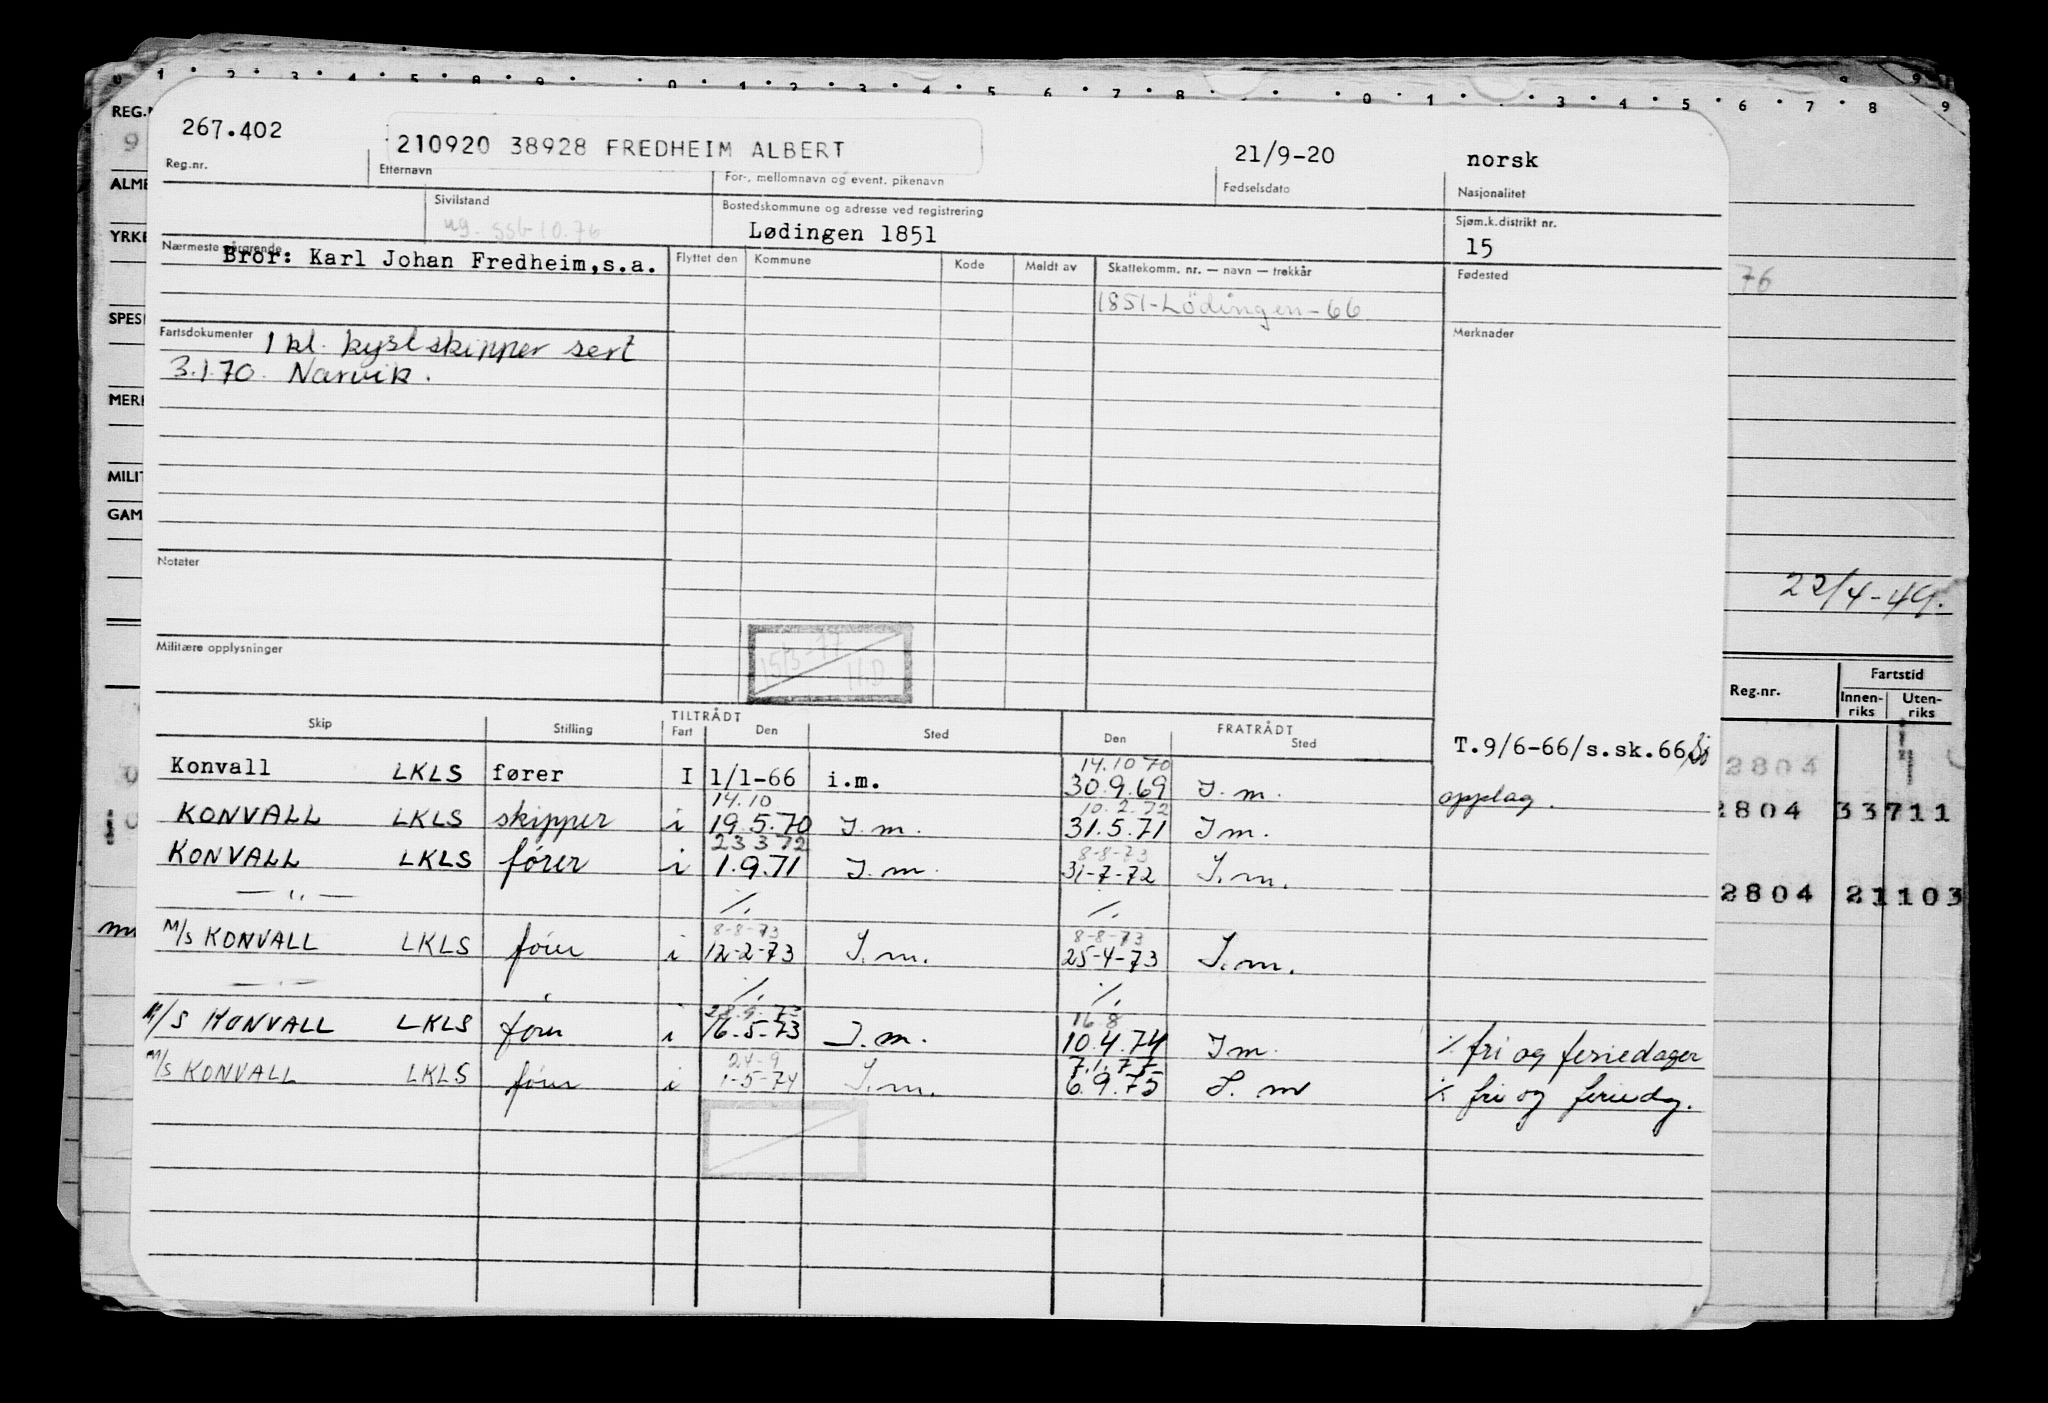 0 1 2 3 4 5 8 9 0 1 2 3 4 5 6 7 8 0 1 3 4 5 6 7 8 9
REG.
9
ALME
YRKE
SPESI
MERK
MILIT
GAM
267.402
210920 38928 FREDHEIM ALBERT
21/9-20
norsk
Reg.nr.
Etternavn
For-, mellomnavn og event. pikenavn
Fødselsdato
Nasjonalitet
Sivilstand
ug. ssb 10.76
Bostedskommune og adresse ved registrering
Lødingen 1851
Sjøm.k.distrikt nr.
15
Nærmeste pårørende
Bror: Karl Johan Fredheim,s.a.
Flyttet den
Kommune
Kode
Meldt av
Skattekomm. nr. — navn — trekkår
Fødested
1851-Lödingen-66
76
Fartsdokumenter
1 kl. kystskipper sert
3.1.70. Narvik.
Merknader
Notater
22/4-49.
Militære opplysninger
15/3-77
H.D.
Reg.nr.
Fartstid
Innen-
riks
Uten-
riks
Skip
Stilling
TILTRÅDT
Fart
Den
Sted
FRATRÅDT
Den
Sted
T.9/6-66/s.sk.66
Konvall LKLS fører I 1/1-66 i.m. 14.10 70 30.9.69 I.m. opplag.
2804
KONVALL LKLS skipper i 14.10 19.5.70 I.m. 10.2.72 31.5.71 Im.
2804 33711
KONVALL LKLS fører i 23 3 72 1.9.71 I.m. 8-8-73 31-7-72 I.m.
— " — ./. ./.
2804 21103
M/S KONVALL LKLS fører i 8-8-73 12-2-73 I.m. 8-8-73 25-4-73 I.m.
— " — ./. ./.
M/S KONVALL LKLS fører i 16.5.73 I.m. 16.8 10.4.74 Im. ./. fri og feriedager
M/S KONVALL LKLS fører i 24-9 1-5-74 I.m. 7.1.77 6.9.75 I.m ./. fri og feriedg.